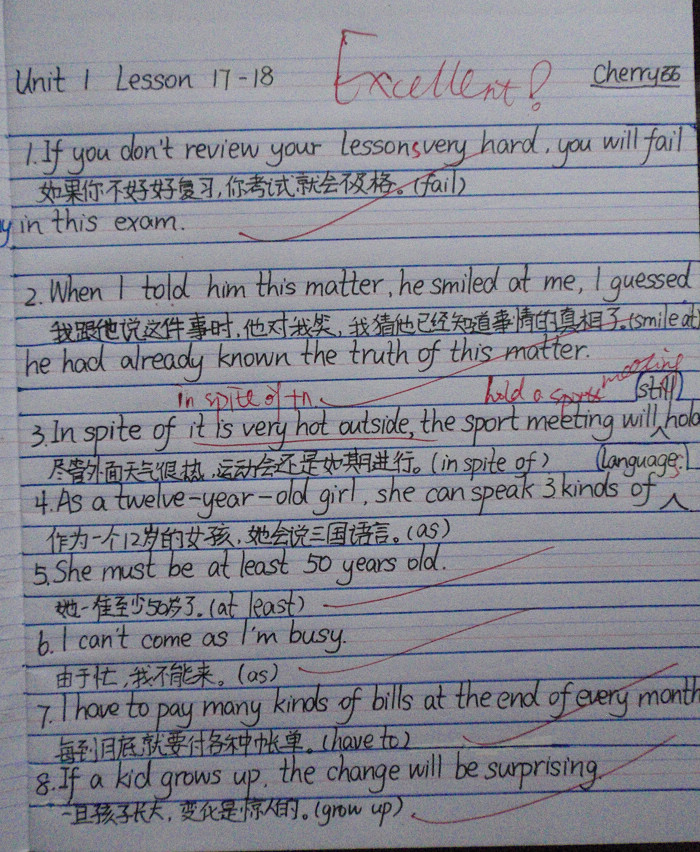 Unit 1 Lesson 17-18 Excellent! Cherry
1. If you don't review your lessons very hard, you will fail
如果你不好好复习,你考试就会不及格。(fail)
in this exam.
2. When I told him this matter, he smiled at me, I guessed
我跟他说这件事时,他对我笑,我猜他已经知道事情的真相了。(smile at)
he had already known the truth of this matter.
in spite of +n. hold a sports meeting
(still)
3. In spite of it is very hot outside, the sport meeting will hold
尽管外面天气很热,运动会还是如期进行。(in spite of) (languages.)
4. As a twelve-year-old girl, she can speak 3 kinds of
作为一个12岁的女孩,她会说三国语言。(as)
5. She must be at least 50 years old.
她一准至少50岁了。(at least)
6. I can't come as I'm busy.
由于忙,我不能来。(as)
7. I have to pay many kinds of bills at the end of every month
每到月底就要付各种帐单。(have to)
8. If a kid grows up, the change will be surprising.
一旦孩子长大,变化是惊人的。(grow up)